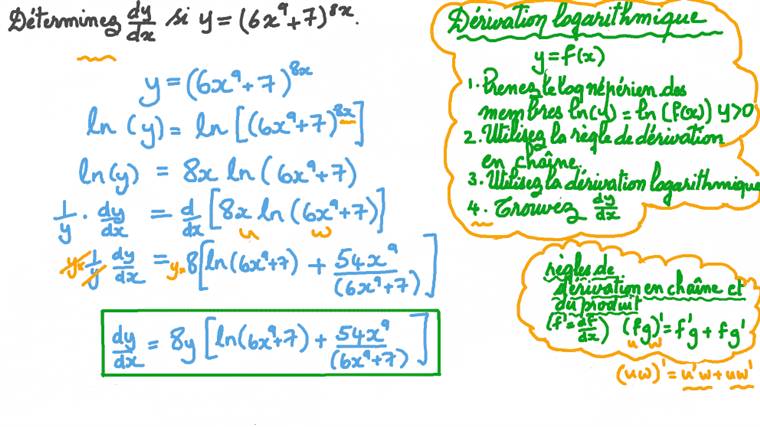 Déterminez dy/dx si y = (6x⁹+7)⁸ˣ.
y = (6x⁹+7)⁸ˣ
ln (y) = ln [(6x⁹+7)⁸ˣ]
ln(y) = 8x ln (6x⁹+7)
1/y · dy/dx = d/dx [8x ln (6x⁹+7)]
u w
y·1/y dy/dx = y·8[ln(6x⁹+7) + 54x⁹/(6x⁹+7)]
dy/dx = 8y [ln(6x⁹+7) + 54x⁹/(6x⁹+7)]
Dérivation logarithmique
y = f(x)
1. Prenez le log népérien des
membres ln(y) = ln (f(x)) y>0
2. Utilisez la règle de dérivation
en chaîne.
3. Utilisez la dérivation logarithmique
4. Trouvez dy/dx
règles de
dérivation en chaîne et
du produit
(f' = df/dx) (fg)' = f'g + fg'
u w
(uw)' = u'w + uw'